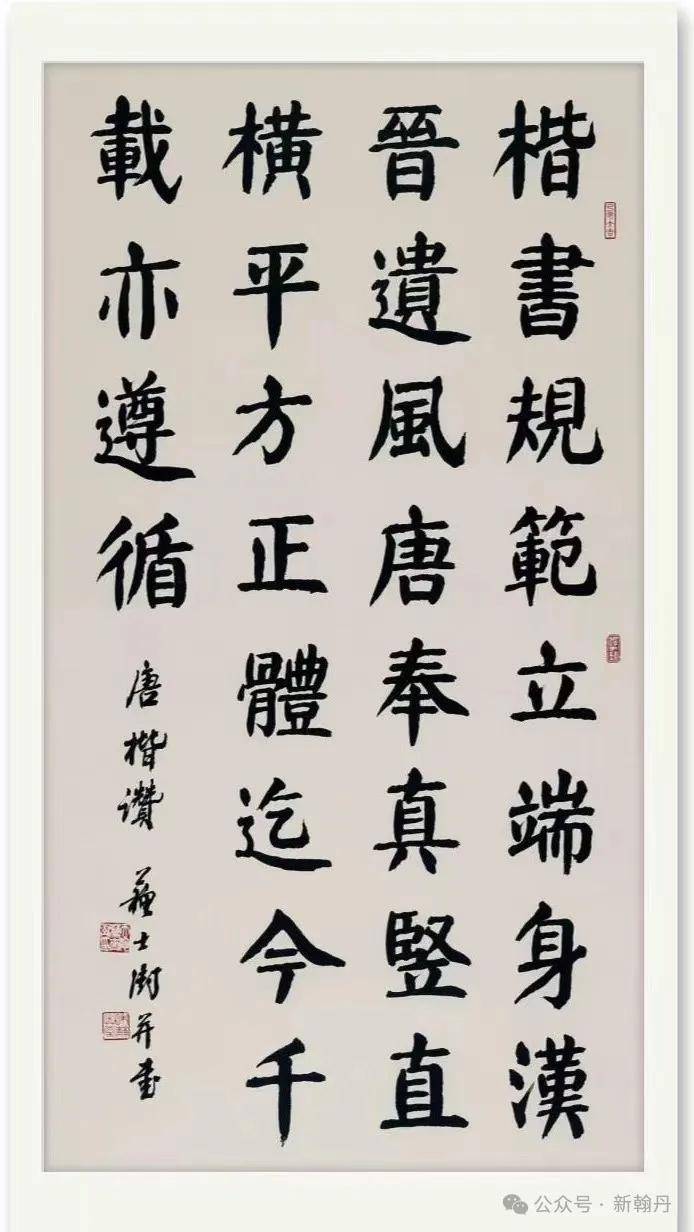 楷書規範立端身漢
晉遺風唐奉真竪直
橫平方正體迄今千
載亦遵循
唐楷讚 蘇士澍并書
公众号 · 新翰丹